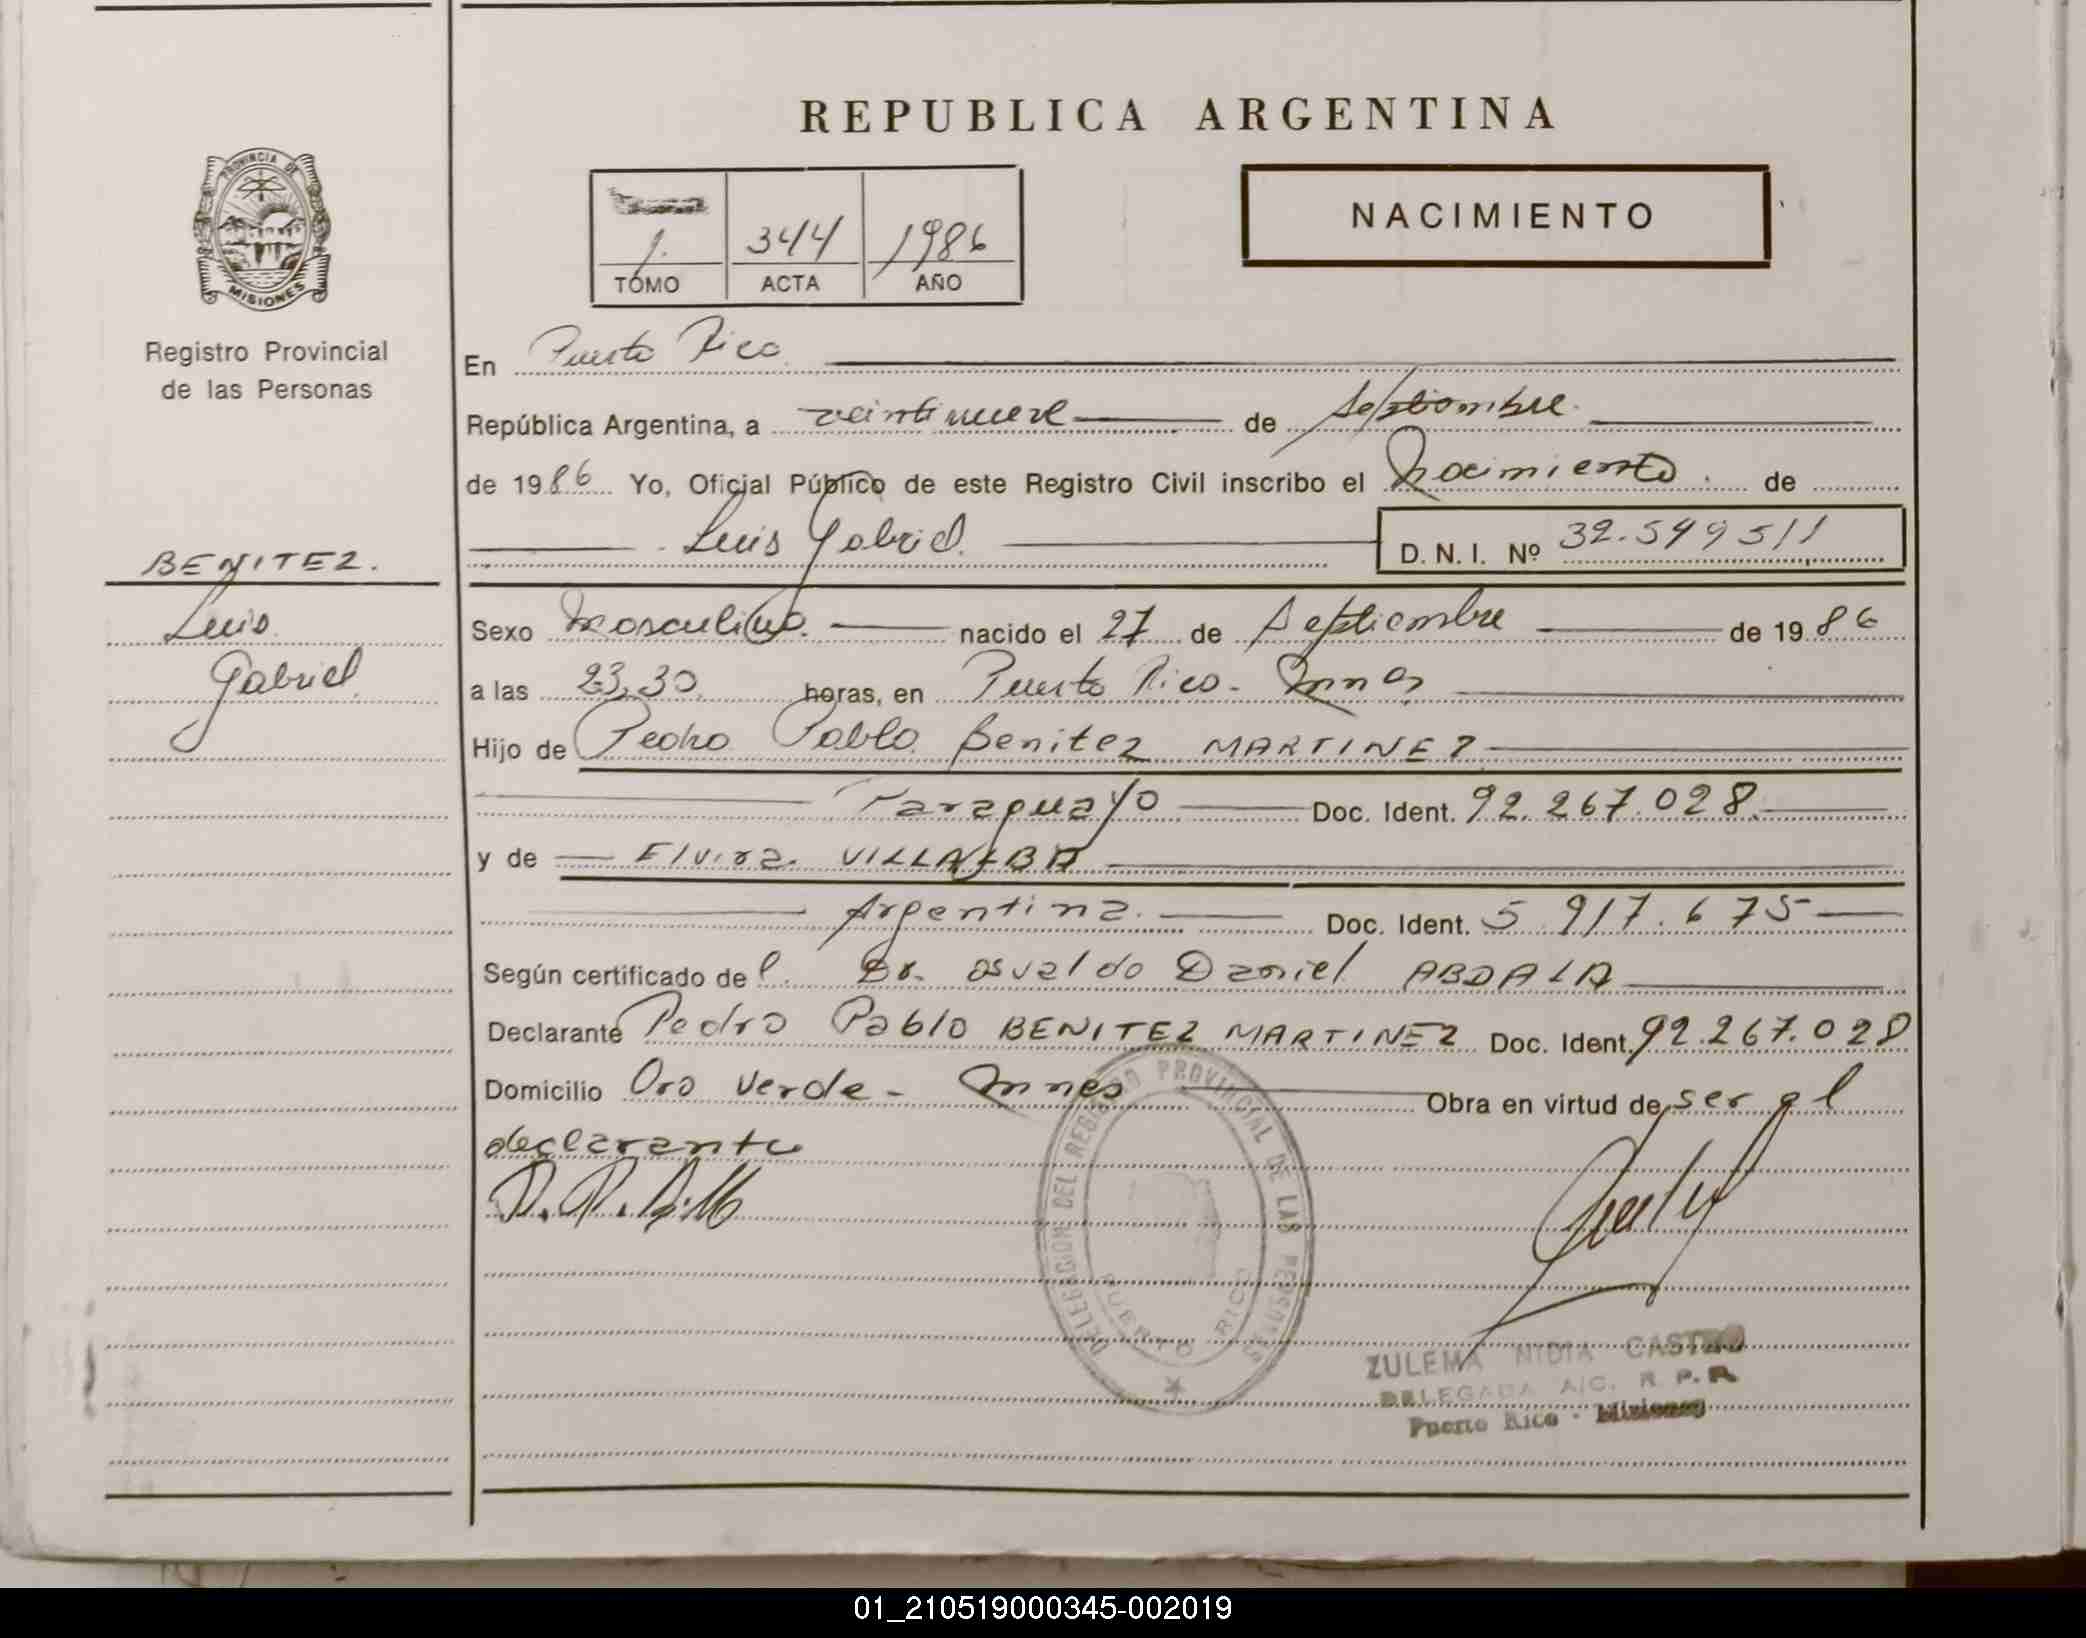 REPUBLICA ARGENTINA
PROVINCIA DE
MISIONES
Registro Provincial
de las Personas
1. 344 1986
TOMO ACTA AÑO
NACIMIENTO
En Puerto Rico
República Argentina, a veintinueve de Septiembre
de 1986 Yo, Oficial Público de este Registro Civil inscribo el Nacimiento de
Luis Gabriel D. N. I. Nº 32.549511
BENITEZ.
Luis
Gabriel
Sexo Masculino nacido el 27 de Septiembre de 1986
a las 23,30 horas, en Puerto Rico - Mnes
Hijo de Pedro Pablo Benitez MARTINEZ
Paraguayo Doc. Ident. 92.267.028
y de Elvira VILLALBA
Argentina Doc. Ident. 5.917.675
Según certificado del Dr. Osvaldo Daniel ABDALA
Declarante Pedro Pablo BENITEZ MARTINEZ Doc. Ident. 92.267.028
Domicilio Oro Verde - Mnes Obra en virtud de ser el
declarante
DELEGACION DEL REGISTRO PROVINCIAL DE LAS PERSONAS
PUERTO RICO
ZULEMA NIDIA CASTRO
DELEGADA A/C. R. P. P.
Puerto Rico - Misiones
01_210519000345-002019